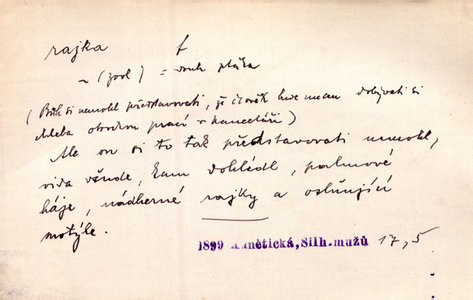 rajka f
~ (zool) = druh ptáka
(Bůh si nemohl představovati, že člověk bude nucen dobývati si
chleba otrockou prací v kanceláři)
Ale on si to tak představovati nemohl,
vida všude, kam dohlédl, palmové
háje, nádherné rajky a oslňující
motýle.
1899 Kunětická, Silh. mužů 17,5